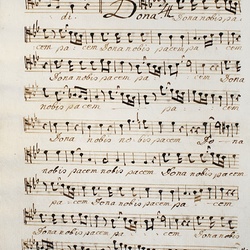 di. Dona Dona nobis pa
cem pa cem Dona nobis pacem pa cem
pa cem Dona nobis pacem Dona
nobis pacem. pa cem
Dona nobis no bis pacem Do na
nobis pacem nobis pacem Dona nobis pacem
pa cem Dona nobis pacem pa
cem Dona nobis pa cem Dona nobis